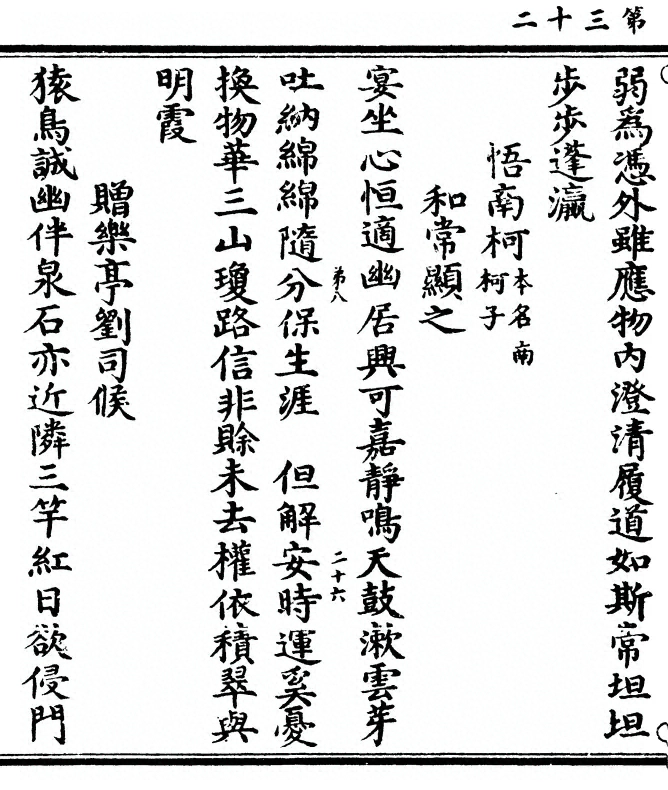 第三十二
弱為憑外雖應物内澄清履道如斯常坦坦
步步蓬瀛
悟南柯 本名南柯子
和常顯之
宴坐心恒適幽居興可嘉靜鳴天鼓漱雲芽
第八 二十六
吐納綿綿隨分保生涯 但解安時運奚憂
換物華三山瓊路信非賒未去權依積翠與
明霞
贈樂亭劉司候
猿鳥誠幽伴泉石亦近隣三竿紅日欲侵門